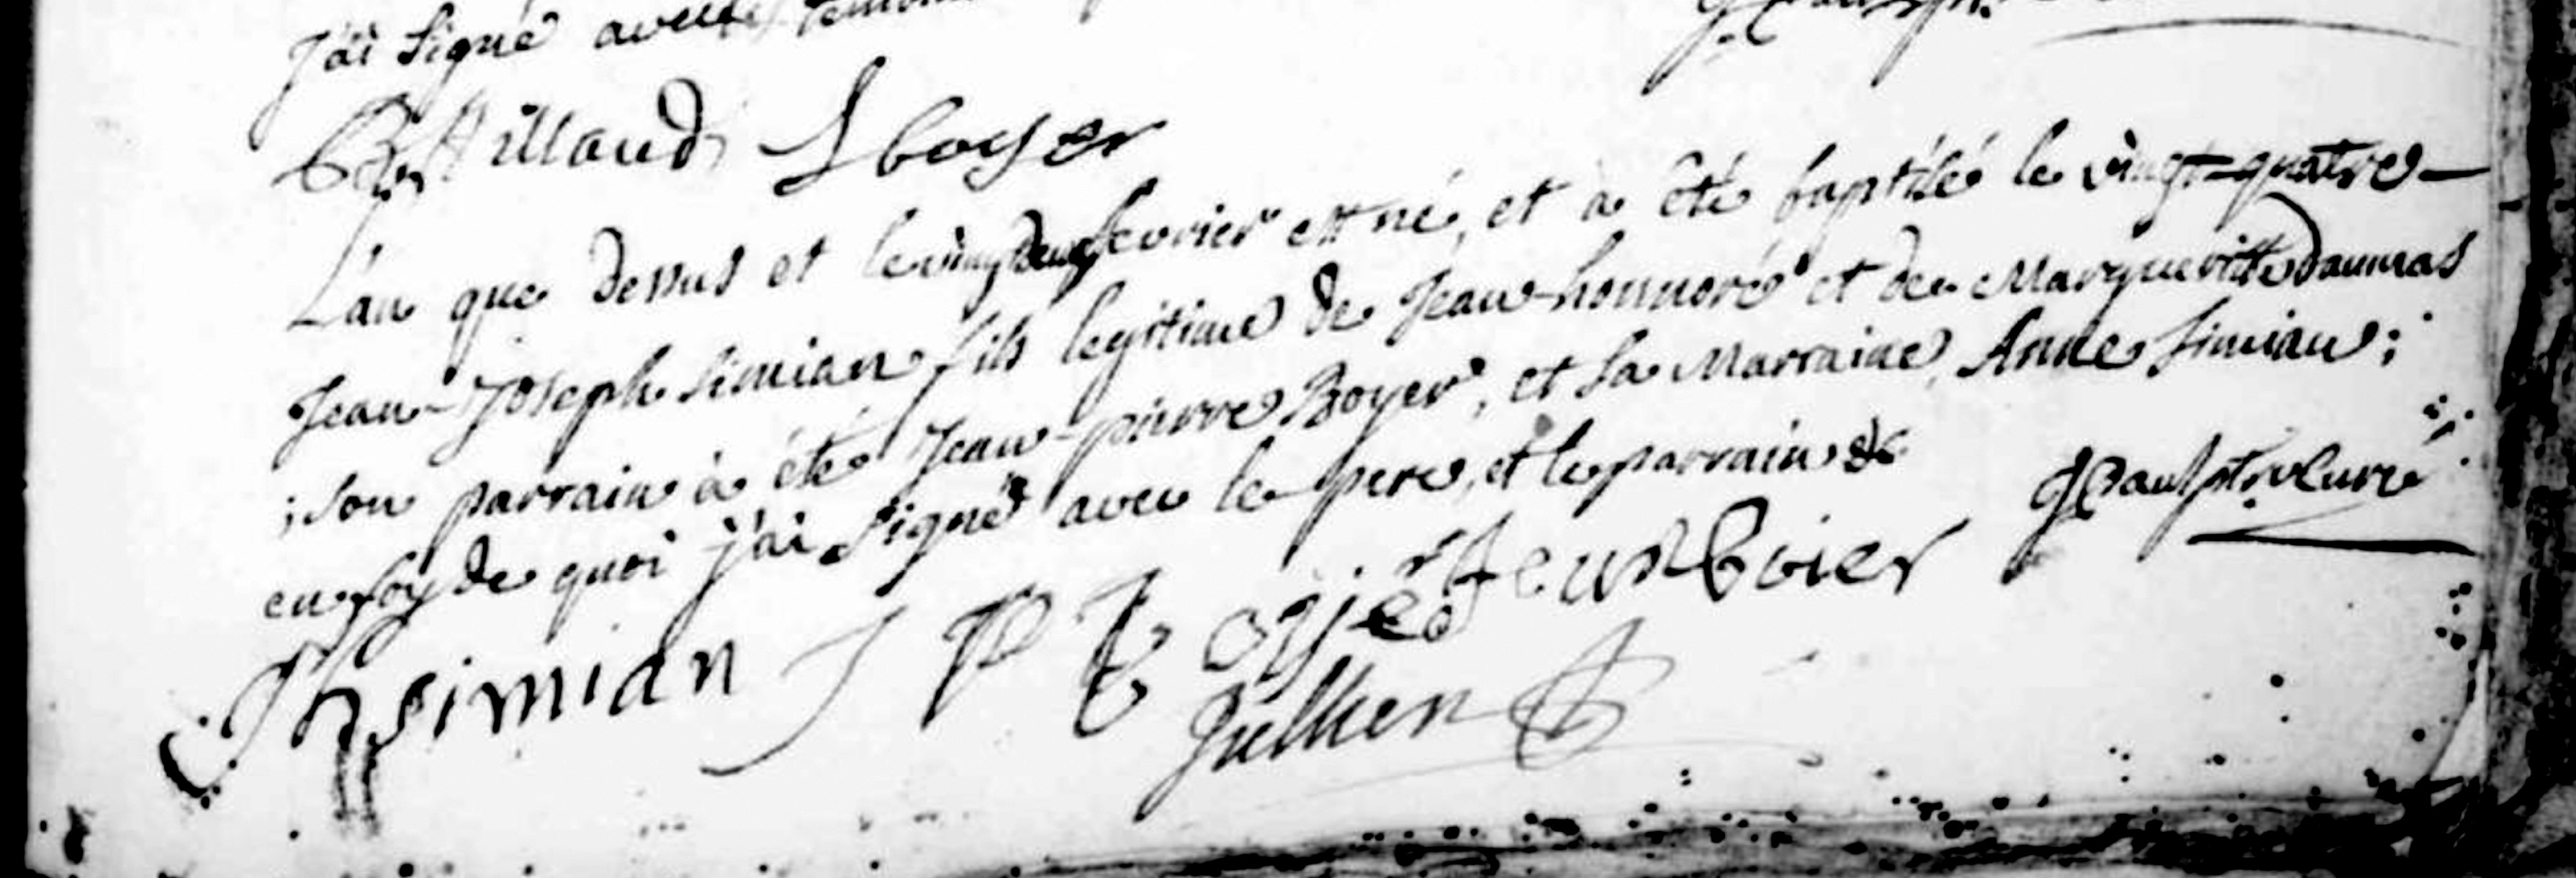 j'ai signé avec les temoins
Billaud L boyer
L'an que dessus et le vingt deux fevrier est né, et à été baptisé le vingt-quatre
Jean-Joseph Simian fils legitime de Jean-honnoré et de Margueritte Daumas
; son parrain à été Jean-pierre Boyer, et sa Marraine, Anne Simian;
en foy de quoi j'ai signé avec le pere, et le parrain &c
JH simian J P boyer
Jullien